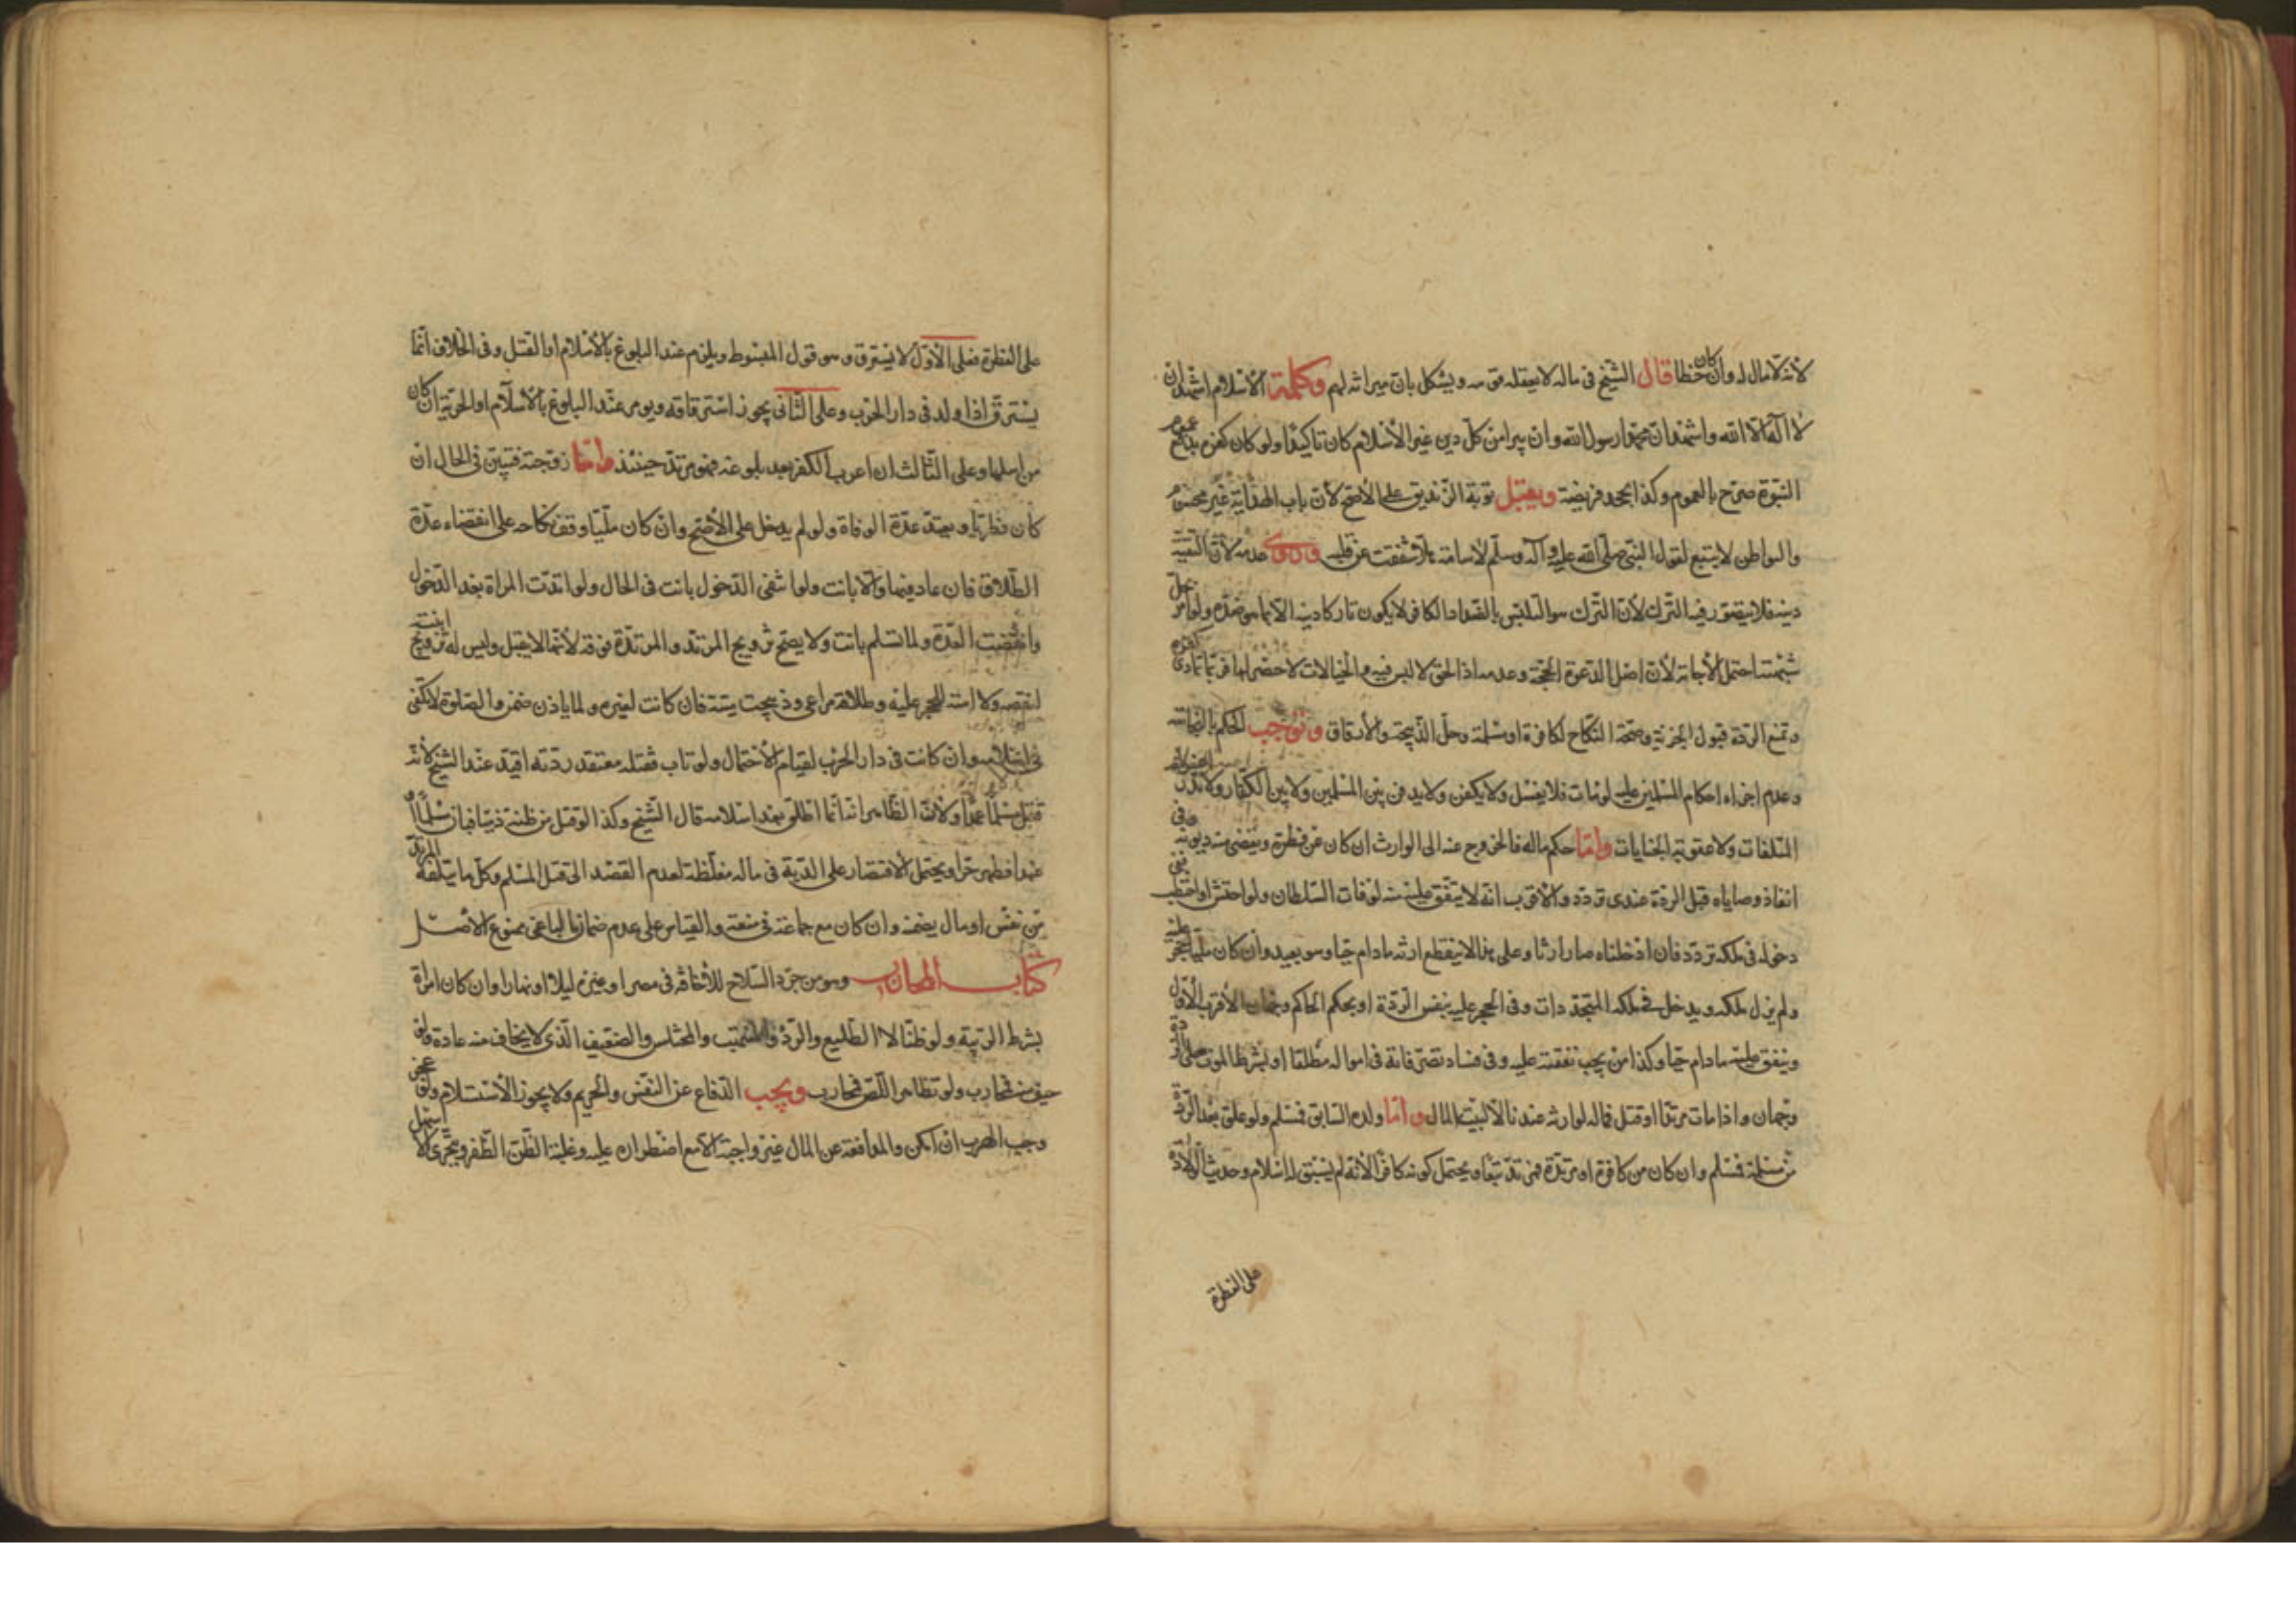 لأنه لا مال له وان كان خطا قال الشيخ في ماله لا يعقله قومه ويشكل بان ميراثه لهم وكلمة الاسلام اشهد ان
لا اله الا الله واشهد ان محمدا رسول الله وان يبرا من كل دين غير الاسلام كان تاكيدا ولو كان كفره بجحد عموم
النبوة صرح بالعموم وكذا بجحد فريضة ويقبل توبة الزنديق على الاصح لأن باب الهداية غير محسوم
والبواطن لا يتبع لقول النبي صلى الله عليه وآله وسلم لأسامة هلا شققت عن قلبه وروى عدمه لأن التقية
دينه فلا يتصور فيه الترك لأن الترك هو التلبس بالضد اذ الكافر لا يكون تاركا دينه الا بما هو ضده ولو امر حل
شبهته احتمل الاجابة لأن اصل الدعوة الحجة وعدمه اذ الحق لا لبس فيه والخيالات لا حصر لها فربما تمادى كفره
وتمنع الردة قبول الجزية وصحة النكاح لكافرة او مسلمة وحل الذبيحة والارقاق وتوجب الحكم بالنجاسة
وعدم اجراء احكام المسلمين عليه لو مات فلا يغسل ولا يكفن ولا يدفن بين المسلمين ولا بين الكفار ولا
المتلفات ولا عقوبة الجنايات واما حكم ماله فالخروج عنه الى الوارث ان كان عن فطرة ويقضى منه ديونه وفي
انفاذ وصاياه قبل الردة عندى تردد والاقرب انه لا ينفق عليه منه لو فات السلطان ولو احتش او احتطب ففي
دخوله في ملكه تردد فان ادخلناه صار ارثا وعلى هذا لا ينقطع ارثه ما دام حيا وهو بعيد وان كان مليا حجر عليه
ولم يزل ملكه ويدخل في ملكه المتجددات وفي الحجر عليه بنفس الردة او بحكم الحاكم وجهان الاقرب الاول
وينفق عليه ما دام حيا وكذا من يجب نفقته عليه وفي فساد تصرفاته في امواله مطلقا او بشرط الموت على الردة
وجهان واذا مات مرتدا او قتل فماله لوارثه عندنا لا لبيت المال واما ولده السابق فمسلم ولو علق بعد الردة
من مسلمة فمسلم وان كان من كافرة او مرتدة فمرتد تبعا ويحتمل كونه كافرا لأنه لم يسبق له اسلام وحديث الولادة
على الفطرة
على الفطرة فعلى الاول لا يسترق وهو قول المبسوط ويلزم عند البلوغ بالاسلام او القتل وفي الخلاف انما
يسترق اذا ولد في دار الحرب وعلى الثاني يجوز استرقاقه ويومر عند البلوغ بالاسلام او الحرية ان كان
من اهلها وعلى الثالث ان اعرب الكفر بعد بلوغه فهو مرتد حينئذ واما زوجته فتبين في الحال ان
كان فطريا وتعتد عدة الوفاة ولو لم يدخل على الاصح وان كان مليا وقف نكاحه على انقضاء عدة
الطلاق فان عاد فيها والا بانت ولو انتفى الدخول بانت في الحال ولو ارتدت المراة بعد الدخول
وانقضت العدة ولما تسلم بانت ولا يصح تزويج المرتد والمرتدة فرقة لأنهما لا يقبل وليس له تزويج ابنته
لنقصه ولا امته للحجر عليه وطلاقه مراعى وذبيحته ميتة فان كانت لغيره ولما ياذن ضمن والصلوة لا تكفى
في اسلامه وان كانت في دار الحرب لقيام الاحتمال ولو تاب فقتله معتقد ردته اقيد عند الشيخ لأنه
قتل مسلما عمدا ولأن الظاهر انه انما اطلق بعد اسلامه قال الشيخ وكذا لو قتل من ظنه ذميا فبان مسلما او
عبدا فظهر حرا ويحتمل الاقتصار على الدية في ماله مغلظة لعدم القصد الى قتل المسلم وكل ما يتلفه المرتد
من نفس او مال يضمنه وان كان مع جماعة في منعة والقياس على عدم ضمان الباغي ممنوع الاصل
كتاب المحارب وهو من جرد السلاح للاخافة في مصر او غيره ليلا او نهارا وان كان امراة
بشرط الريبة ولو ظنا لا الطليع والردء والمنتهب والمختلس والضعيف الذي لا يخاف منه عادة ولو
خيف منه فمحارب ولو تظاهر اللص فمحارب ويجب الدفاع عن النفس والحريم ولا يجوز الاستسلام ولو عجز
وجب الهرب ان امكن والمدافعة عن المال غير واجبة الا مع اضطراره اليه وغلبة الظن الظفر ويتحرى الاسهل